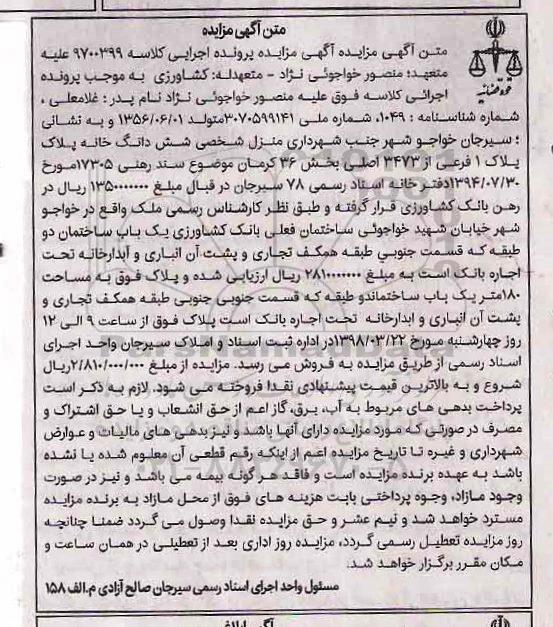 متن آگهی مزایده
متن آگهی مزایده آگهی مزایده پرونده اجرایی کلاسه ۹۷۰۰۳۹۹ علیه
متعهد؛ منصور خواجوئی نژاد - متعهدله: کشاورزی به موجب پرونده
اجرائی کلاسه فوق علیه منصور خواجوئی نژاد نام پدر : غلامعلی ،
شماره شناسنامه : ۱۰۴۹، شماره ملی ۳۰۷۰۵۹۹۱۴۱متولد ۱۳۵۶/۰۶/۰۱ و به نشانی
؛ سیرجان خواجو شهر جنب شهرداری منزل شخصی شش دانگ خانه پلاک
پلاک ۱ فرعی از ۳۴۷۳ اصلی بخش ۳۶ کرمان موضوع سند رهنی ۱۷۳۰۵مورخ
۱۳۹۴/۰۷/۳۰دفتر خانه اسناد رسمی ۷۸ سیرجان در قبال مبلغ ۱۳۵۰۰۰۰۰۰۰ ریال در
رهن بانک کشاورزی قرار گرفته و طبق نظر کارشناس رسمی ملک واقع در خواجو
شهر خیابان شهید خواجوئی ساختمان فعلی بانک کشاورزی یک باب ساختمان دو
طبقه که قسمت جنوبی طبقه همکف تجاری و پشت آن انباری و آبدارخانه تحت
اجاره بانک است به مبلغ ۲۸۱۰۰۰۰۰۰۰ ریال ارزیابی شده و پلاک فوق به مساحت
۱۸۰متر یک باب ساختماندو طبقه که قسمت جنوبی جنوبی طبقه همکف تجاری و
پشت آن انباری و ابدارخانه تحت اجاره بانک است پلاک فوق از ساعت ۹ الی ۱۲
روز چهارشنبه مورخ ۱۳۹۸/۰۳/۲۲در اداره ثبت اسناد و املاک سیرجان واحد اجرای
اسناد رسمی از طریق مزایده به فروش می رسد. مزایده از مبلغ ۲/۸۱۰/۰۰۰/۰۰۰ریال
شروع و به بالاترین قیمت پیشنهادی نقدا فروخته می شود. لازم به ذکر است
پرداخت بدهی های مربوط به آب، برق، گاز اعم از حق انشعاب و یا حق اشتراک و
مصرف در صورتی که مورد مزایده دارای آنها باشد و نیز بدهی های مالیات و عوارض
شهرداری و غیره تا تاریخ مزایده اعم از اینکه رقم قطعی آن معلوم شده یا نشده
باشد به عهده برنده مزایده است و فاقد هر گونه بیمه می باشد و نیز در صورت
وجود مازاد، وجوه پرداختی بابت هزینه های فوق از محل مازاد به برنده مزایده
مسترد خواهد شد و نیم عشر و حق مزایده نقدا وصول می گردد ضمنا چنانچه
روز مزایده تعطیل رسمی گردد، مزایده روز اداری بعد از تعطیلی در همان ساعت و
مکان مقرر برگزار خواهد شد.
مسئول واحد اجرای اسناد رسمی سیرجان صالح آزادی م.الف ۱۵۸